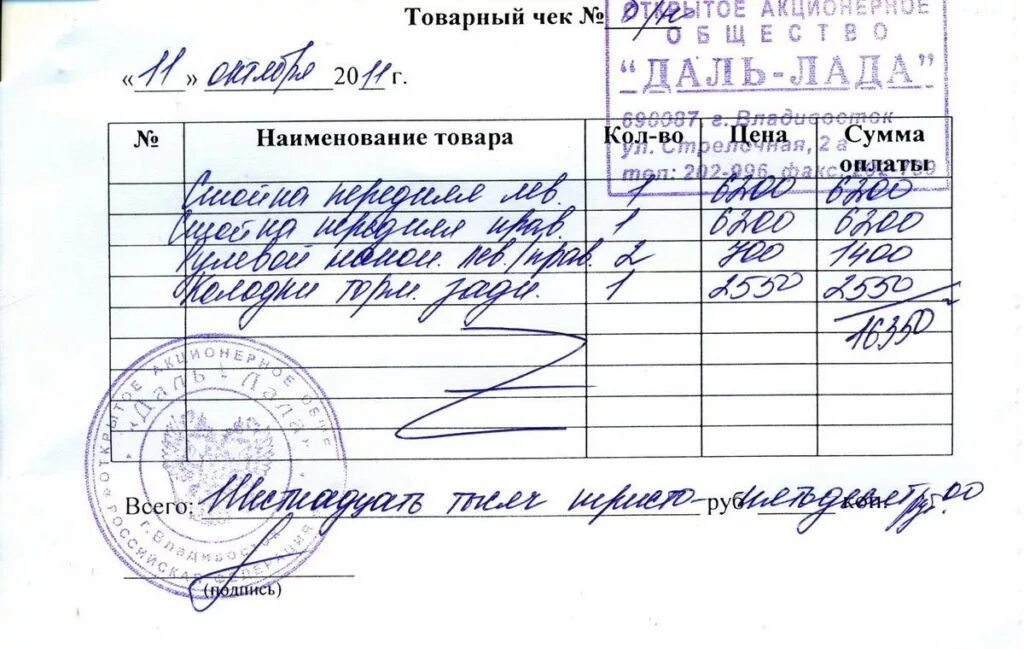 Товарный чек № б/н
ОТКРЫТОЕ АКЦИОНЕРНОЕ
ОБЩЕСТВО
“ДАЛЬ-ЛАДА”
690087, г. Владивосток
ул. Стрелочная, 2 а
тел: 202-996, факс:
«11» октября 2011 г.
№ Наименование товара Кол-во Цена Сумма оплаты
Стойка передняя лев. 1 6200 6200
Стойка передняя прав. 1 6200 6200
Рулевой након. лев./прав. 2 700 1400
Колодки торм. задн. 1 2550 2550
16350
«ОТКРЫТОЕ АКЦИОНЕРНОЕ ОБЩЕ
«Даль-Лада»
г. Владивосток
РОССИЙСКАЯ ФЕДЕРАЦИЯ
Всего: Шестнадцать тысяч триста руб пятьдесят руб. 00 коп.
(подпись)